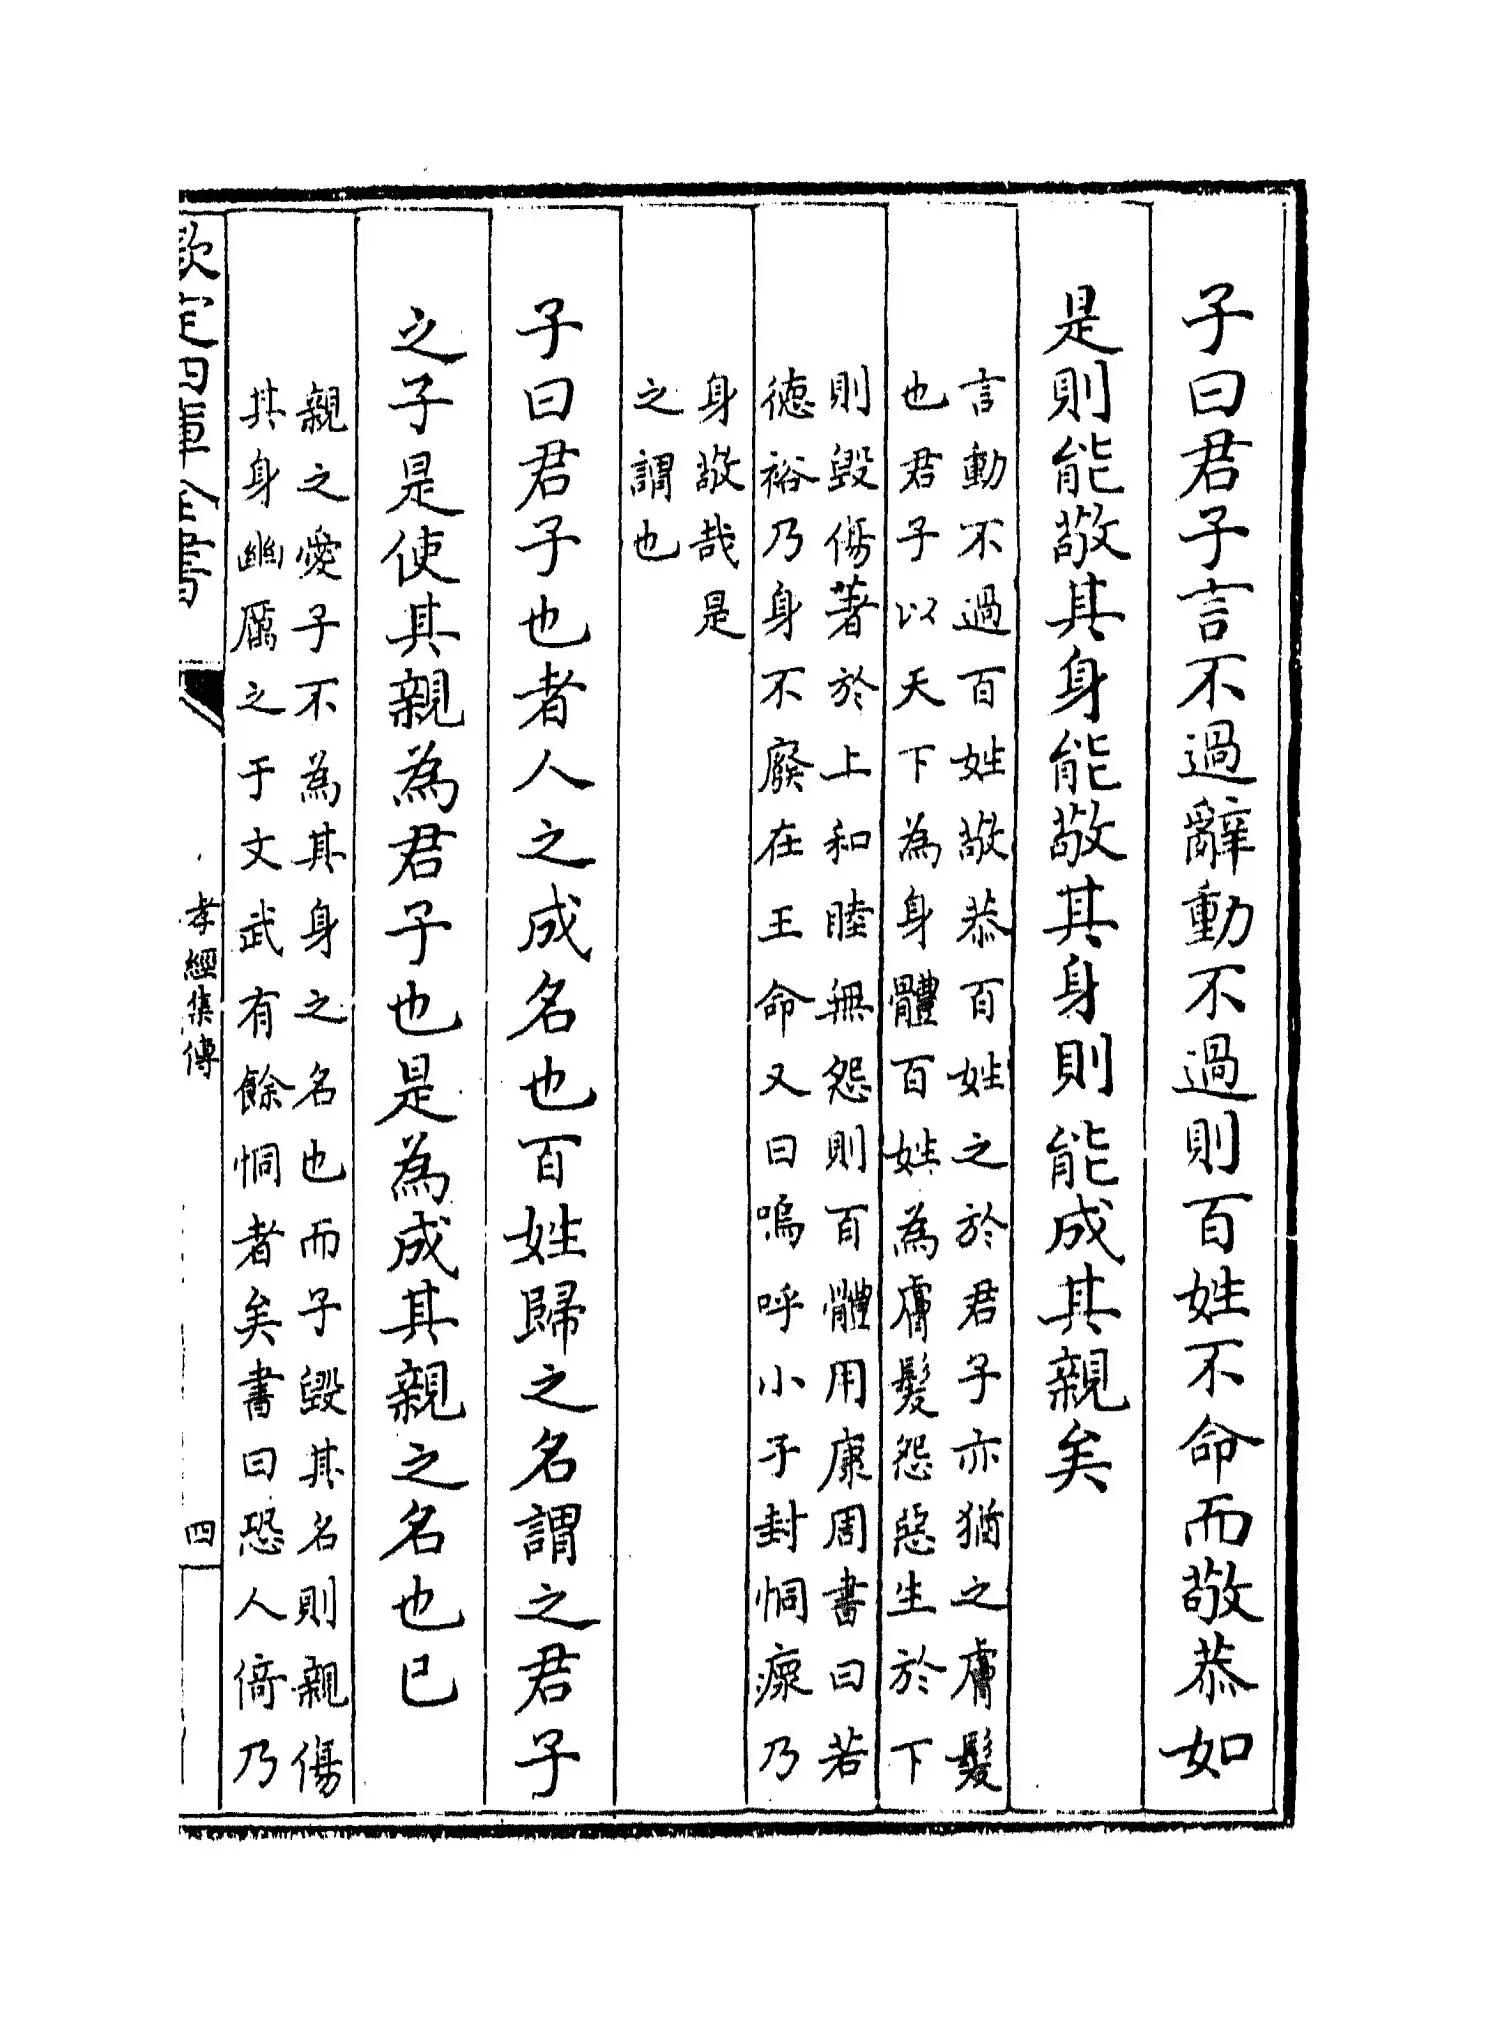 子曰君子言不過辭動不過則百姓不命而敬恭如
是則能敬其身能敬其身則能成其親矣
言動不過百姓敬恭百姓之於君子亦猶之膚髮
也君子以天下為身體百姓為膚髮怨惡生於下
則毀傷著於上和睦無怨則百體用康周書曰若
德裕乃身不廢在王命又曰嗚呼小子封恫瘝乃
身敬哉是
之謂也
子曰君子也者人之成名也百姓歸之名謂之君子
之子是使其親為君子也是為成其親之名也已
親之愛子不為其身之名也而子毀其名則親傷
其身幽厲之于文武有餘恫者矣書曰恐人倚乃
欽定四庫全書
孝經集傳
四